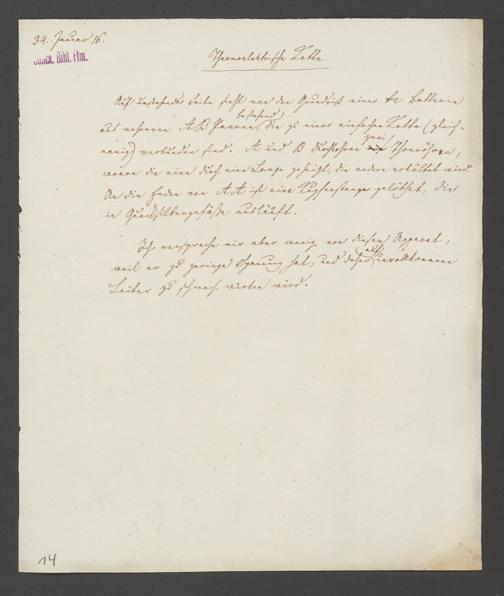 34. Januar 16.
Senck. Bibl. Ffm.
Thermoelektrische Kette.
Auf umstehender Seite sieht man den Grundriß einer Batterie
aus mehreren A B Paaren bestehend, die zu einer einfachen Kette (gleich-
namig) verbunden sind. A und B durchbohren zwei Thonröhren,
wovon die eine durch eine Lampe geheizt, die andere erkältet wird.
An die Enden von A A ist eine Kupferstange gelöthet, die
in Quecksilbergefäße ausläuft.
Ich verspreche mir aber wenig von diesem Apparat,
weil er zu geringe Spannung hat, und daher auf unvollkommene
Leiter zu schwach wirken wird.
14